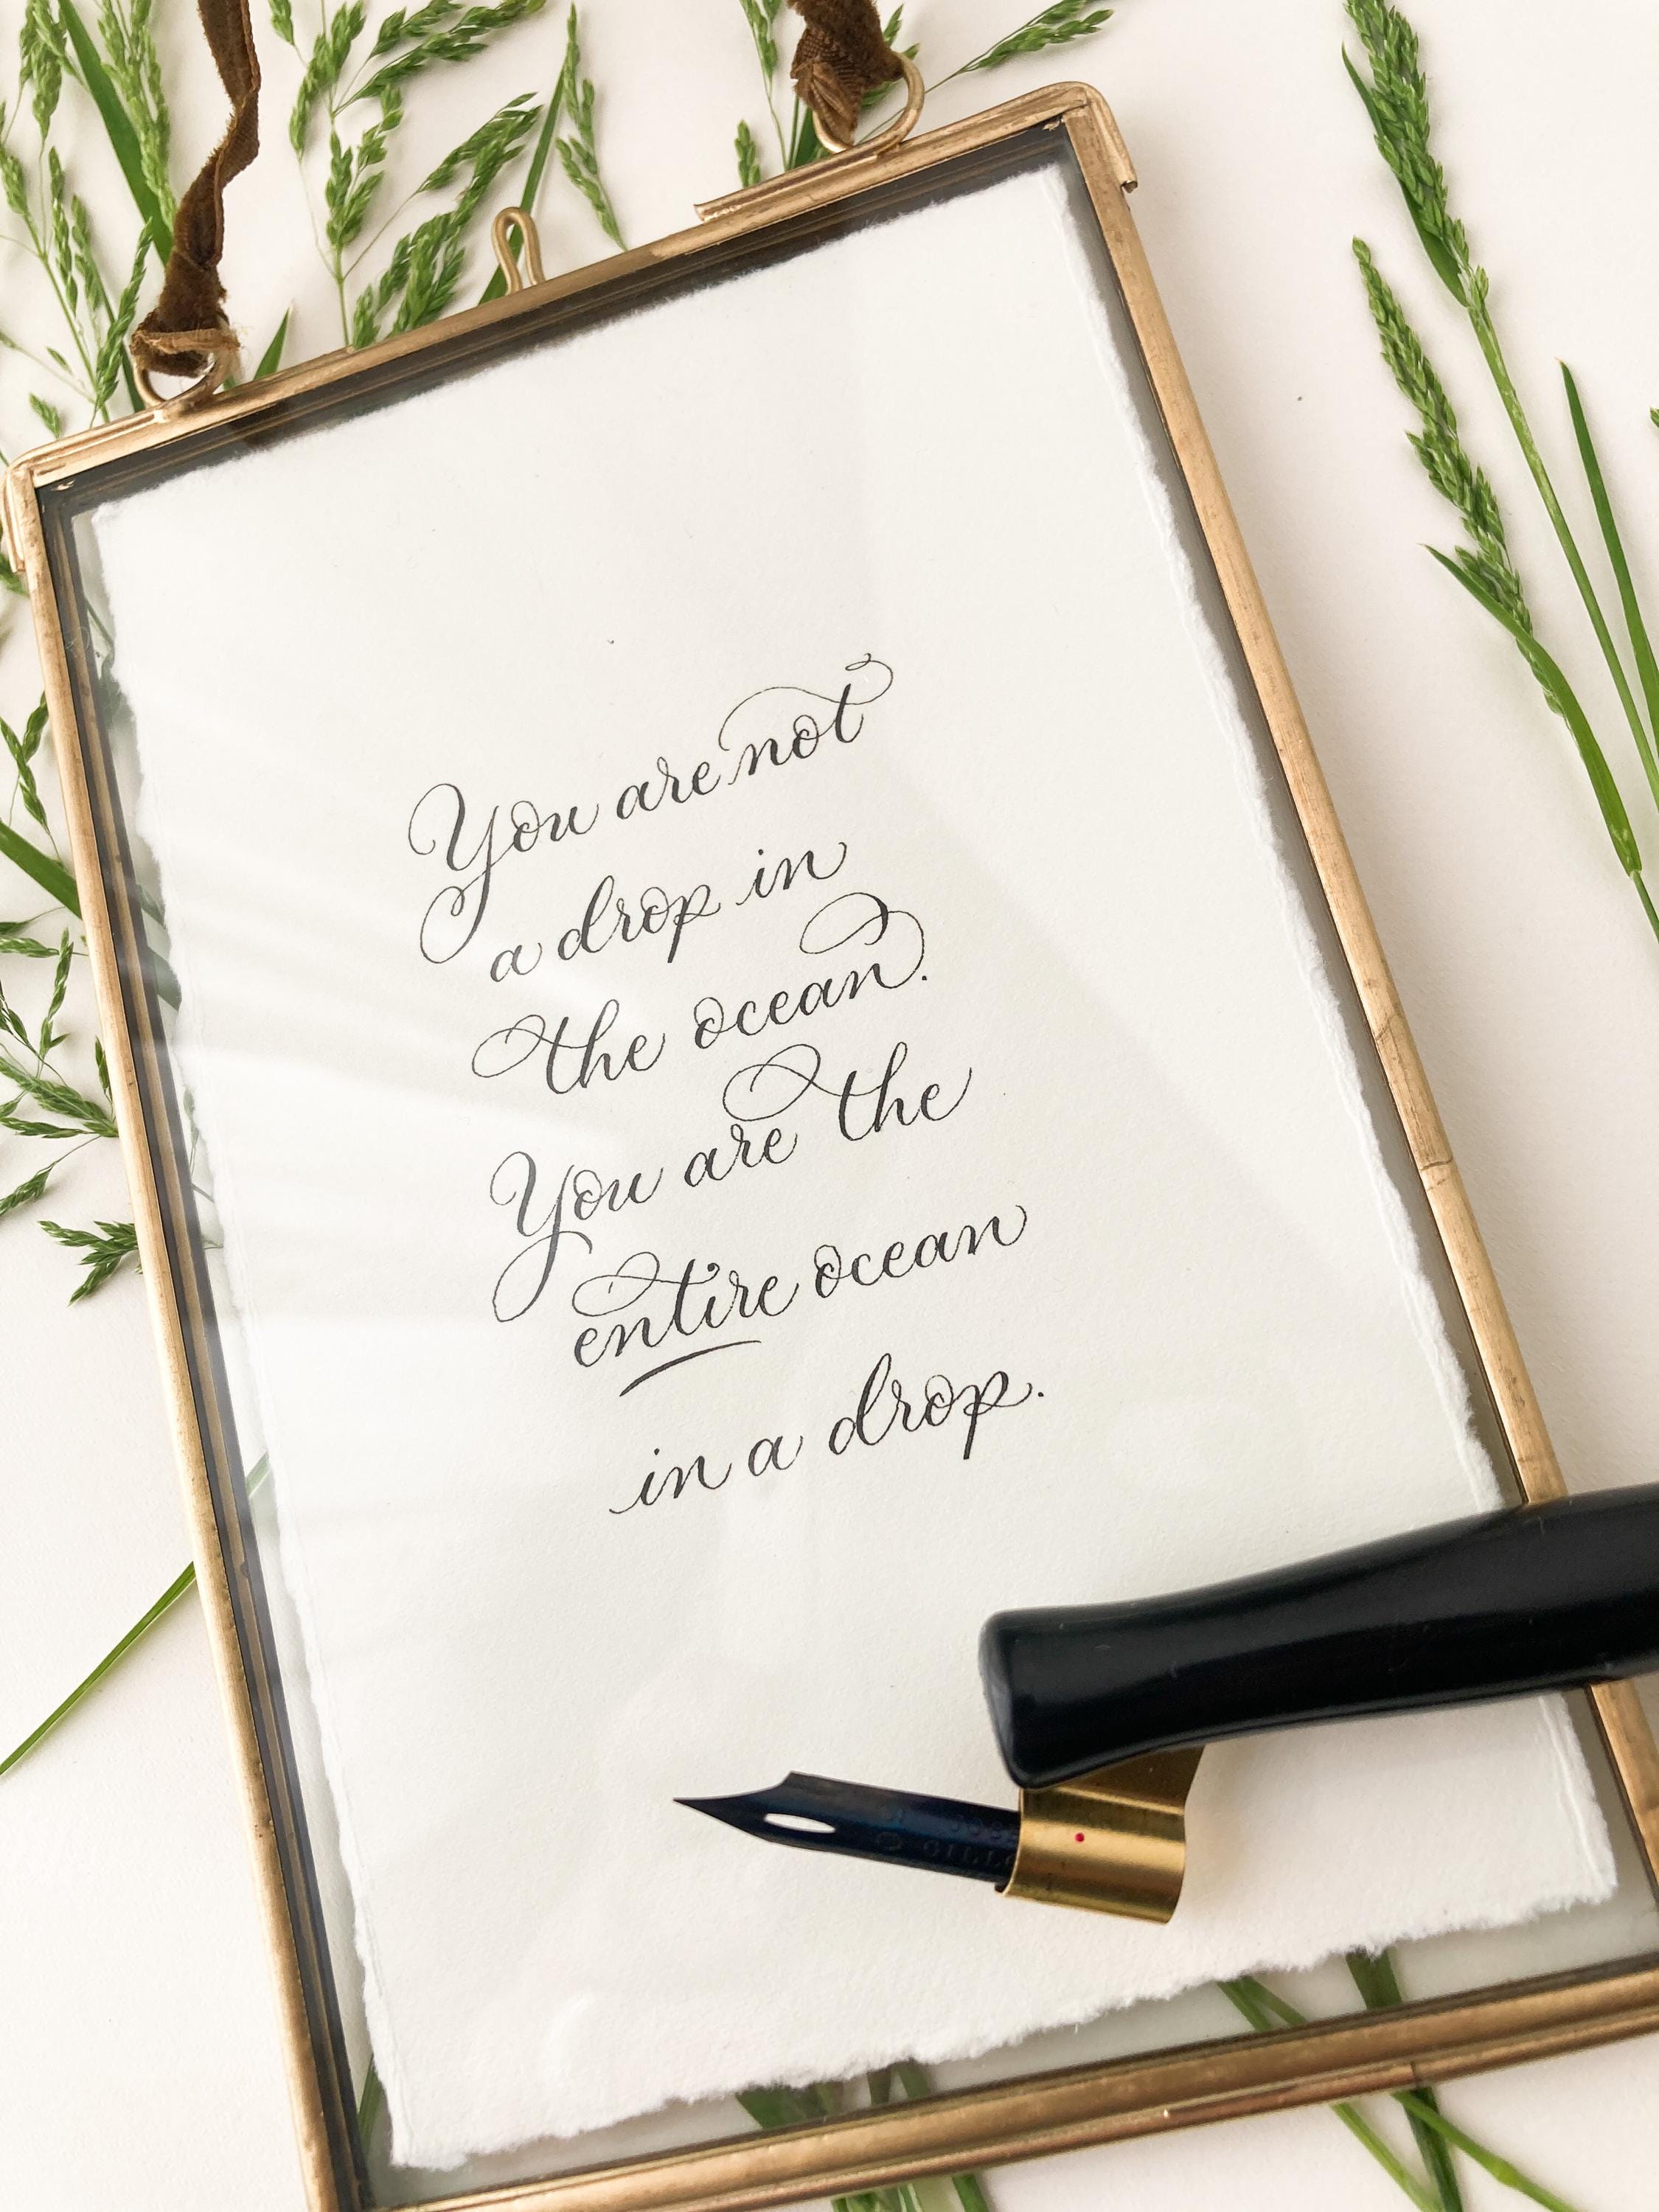 You are not
a drop in
the ocean.
You are the
entire ocean
in a drop.